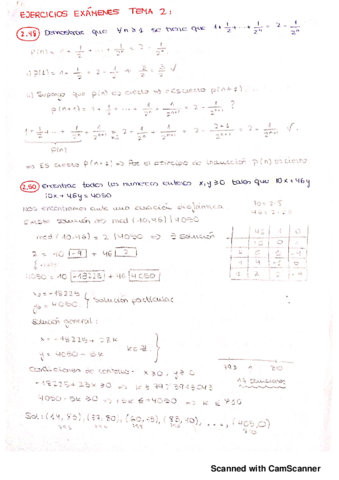 EJERCICIOS EXÁMENES TEMA 2:
2.48 Demostrar que ∀n≥1 se tiene que 1+1/2+...+1/2^n = 2 - 1/2^n
p(n) = 1 + 1/2 + ... + 1/2^n = 2 - 1/2^n
i) p(1) = 1 + 1/2 = 2 - 1/2 ✓
ii) Supongo que p(n) es cierto ⇒ ¿es cierto p(n+1)...
p(n+1) = 1 + ... + 1/2^n + 1/2^(n+1) = 2 - 1/2^(n+1) ?
1 + 1/2 + ... + 1/2^n + 1/2^(n+1) = 2 - 1/2^n + 1/2^(n+1) = 2 - 1/2^(n+1) ✓
p(n)
⇒ Es cierto p(n+1) ⇒ Por el principio de inducción p(n) es cierto
2.50 Encontrar todos los números enteros x,y≥0 tales que 10x+46y
10x + 46y = 4050
Nos encontramos ante una ecuación diofántica
Existe solución ⇔ mcd(10,46) | 4050
10 = 2·5
46 = 2·23
mcd(10,46) = 2 | 4050 ⇒ ∃ solución
2 = 10 · -9 + 46 2
4050 = 10 -18225 + 46 4050
x0 = -18225
y0 = 4050
Solución particular
Solución general:
x = -18225 + 23k
y = 4050 - 5k
k∈ℤ
Condiciones de contorno: x≥0, y≥0
-18225 + 23k ≥ 0 ⇒ k ≥ 792'3913043
4050 - 5k ≥ 0 ⇒ -5k ≥ -4050 ⇒ k ≤ 810
793 810
Sol: (14, 85), (37, 80), (60, 75), (83, 70), ..., (405, 0)
Scanned with CamScanner